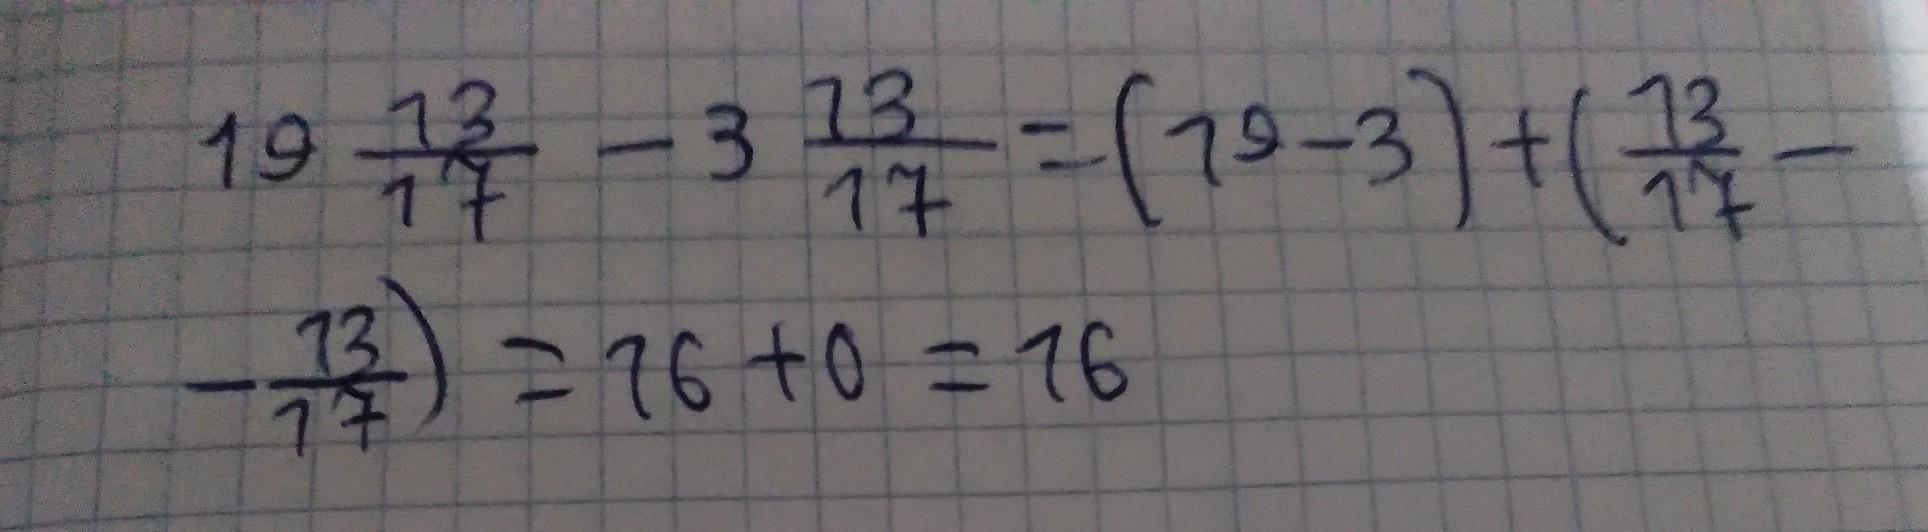 19 13/17 - 3 13/17 = (19-3) + (13/17 -
- 13/17) = 16 + 0 = 16